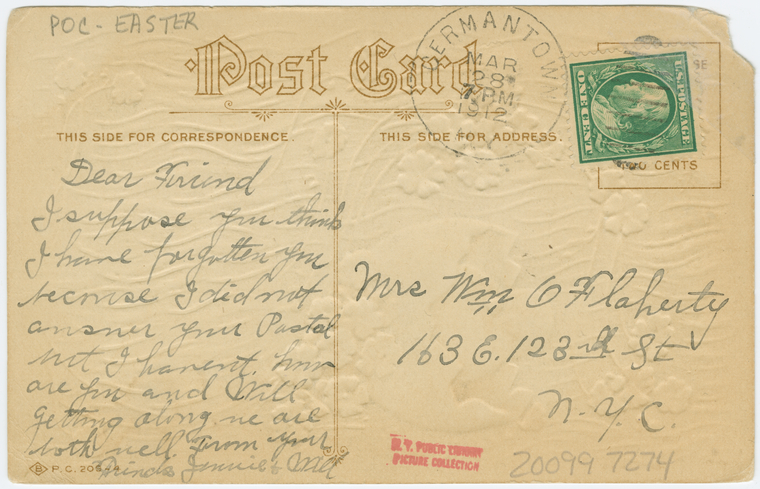 POC - EASTER
Post Card
GERMANTOWN
MAR
28
7 PM
1912
U.S. POSTAGE
ONE CENT
CENTS
THIS SIDE FOR CORRESPONDENCE.
THIS SIDE FOR ADDRESS.
Dear Friend
I suppose you think
I have forgotten you
because I did not
answer your Postal
but I havent. how
are you and Will
getting along. we are
both well. From your
friends Jennie & Will
Mrs Wm O'Flaherty
163 E. 123rd St
N.Y.C.
B P.C. 205-4
N. Y. PUBLIC LIBRARY
PICTURE COLLECTION
20099 7274